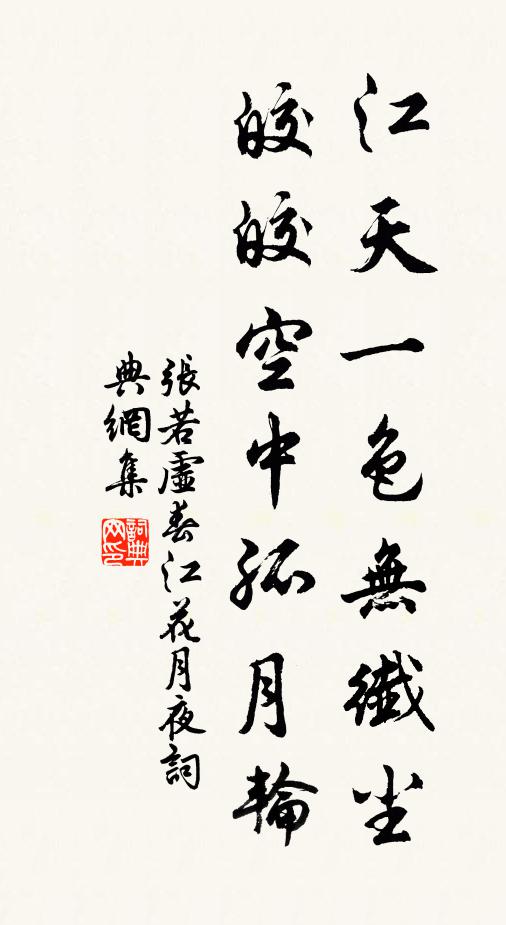 江天一色無纖尘
皎皎空中孤月輪
張若虛春江花月夜詞
典網集
詞典
网印